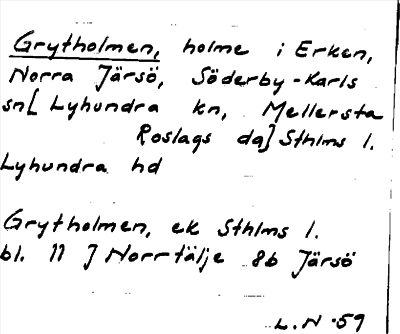 Grytholmen, holme i Erken,
Norra Järsö, Söderby-Karls
sn[Lyhundra kn, Mellersta
Roslags dg] Sthlms l.
Lyhundra hd
Grytholmen, ek Sthlms l.
bl. 11 J Norrtälje 8b Järsö
L.N -59